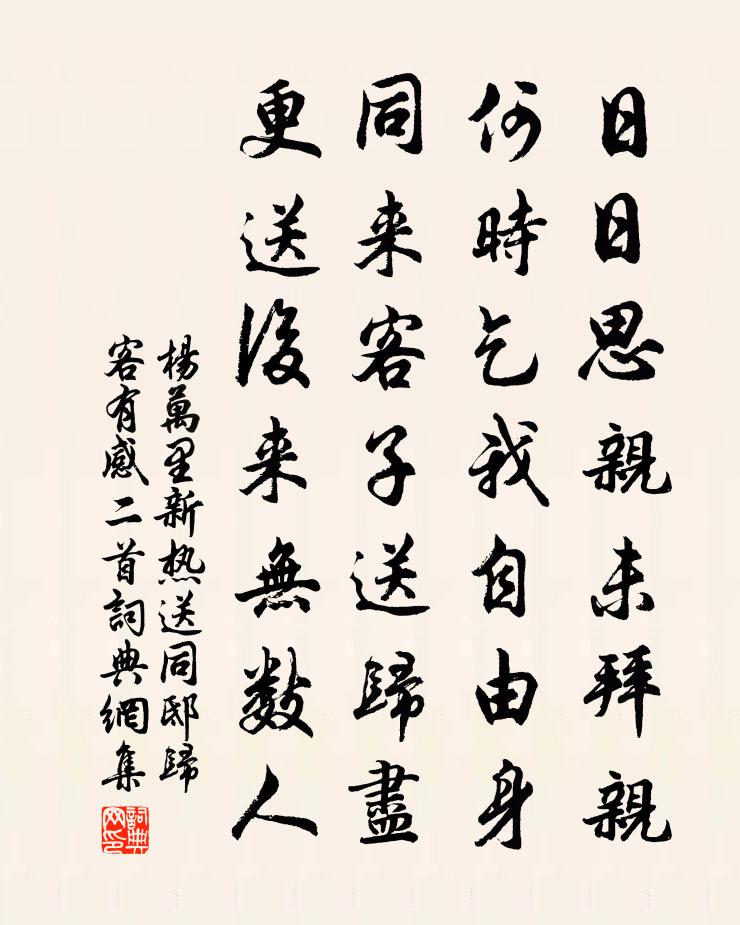 日日思親未拜親
何時乞我自由身
同来客子送歸盡
更送後来無數人
楊萬里新热送同邸歸
客有感二首詞典網集
詞典
网印